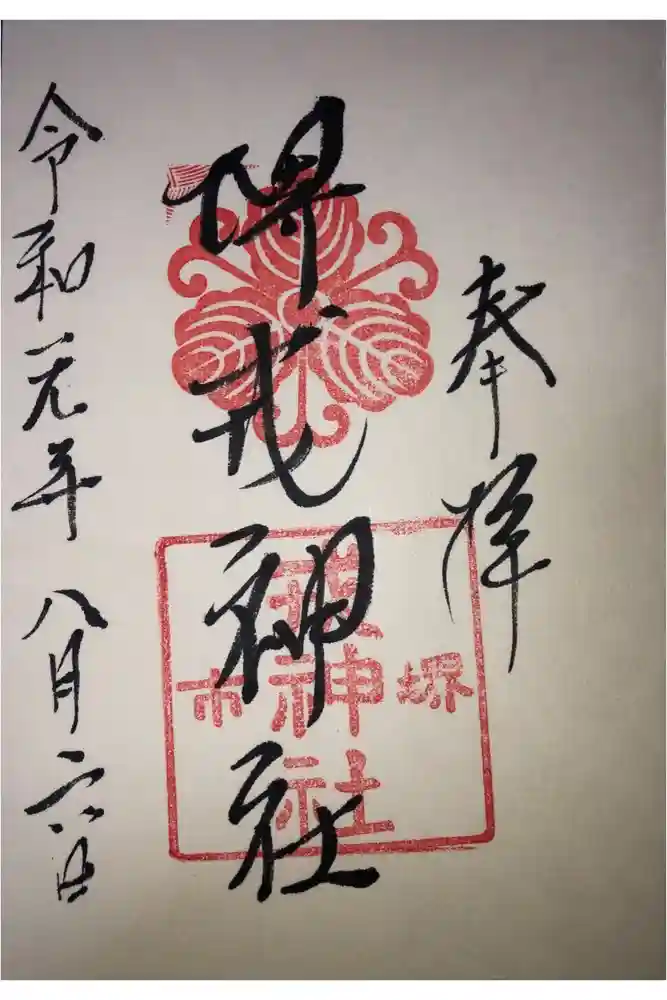 奉拝
堺戎神社
堺
神社
市
令和元年八月六日